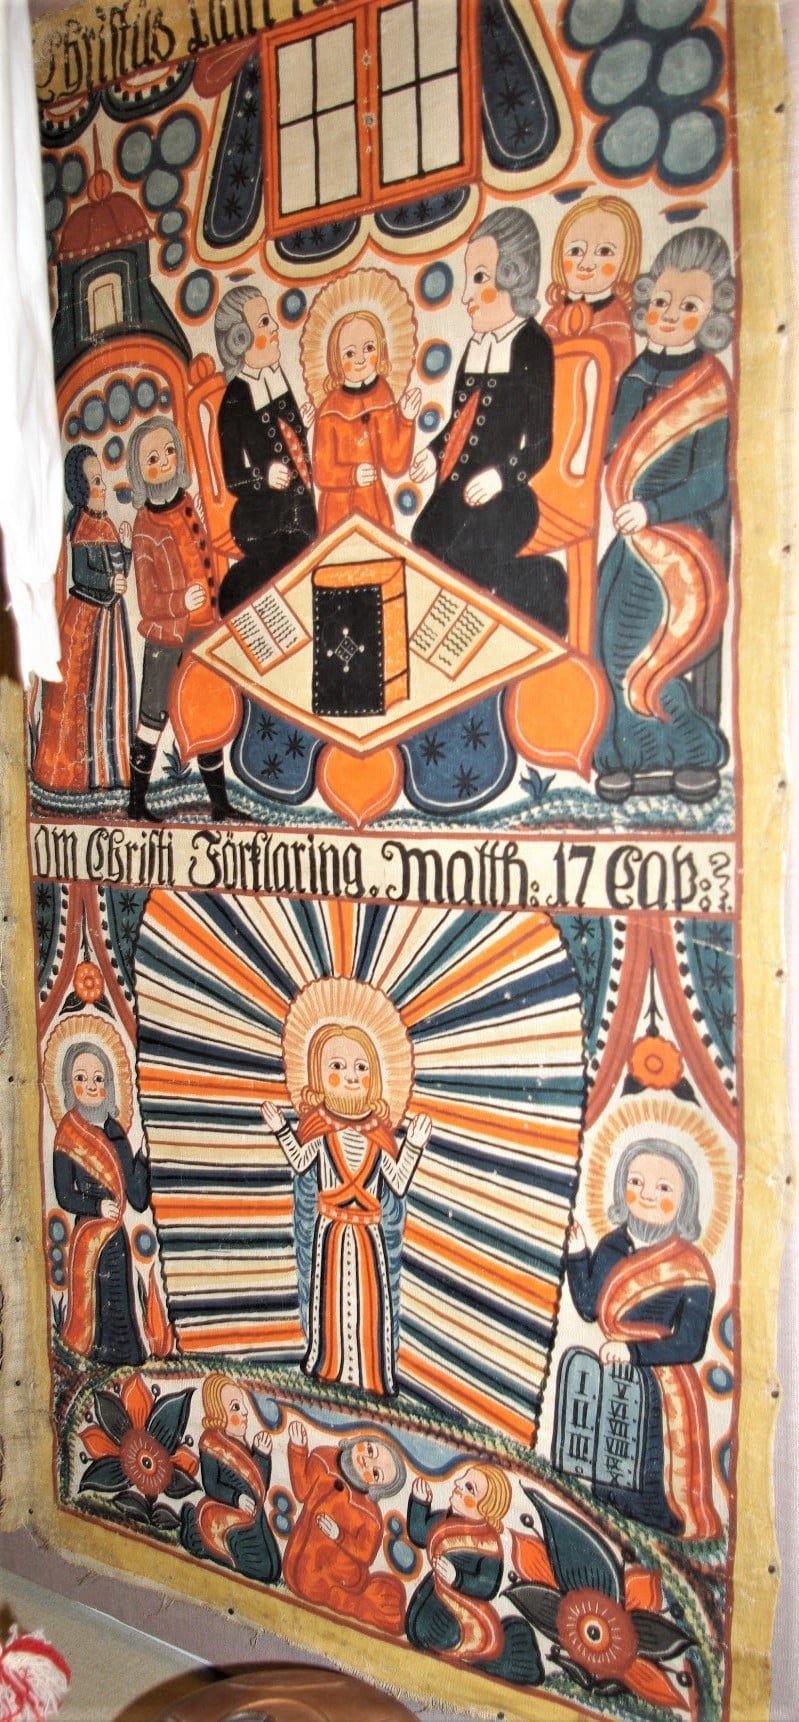 Christus
om Christi Förklaring. Matth: 17 Cap:
I II III
V VI VII VIII